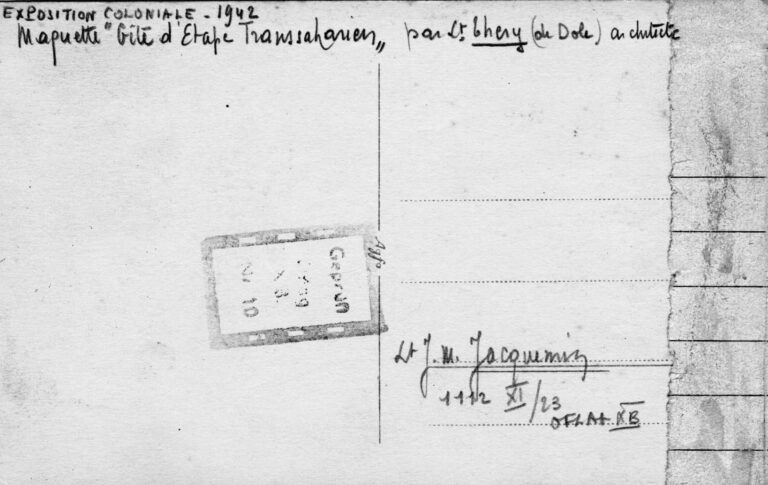 EXPOSITION COLONIALE - 1942
Maquette "Gîte d'Etape Transsaharien„ par Lt Chery (de Dole) architecte
Agfa
Geprüft
Nr 10
Lt J. M. Jacquemin
1112 XI/23
OFLAG XB